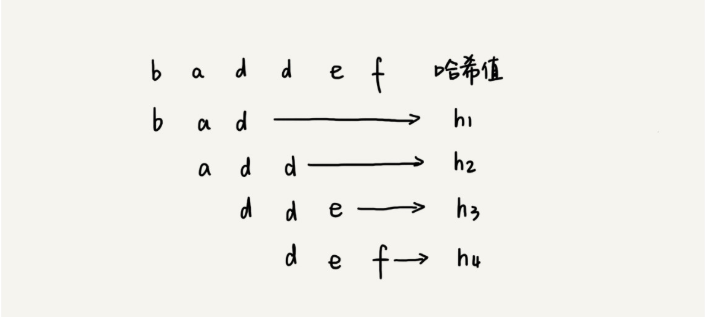 b a d d e f 哈希值
b a d → h1
a d d → h2
d d e → h3
d e f → h4